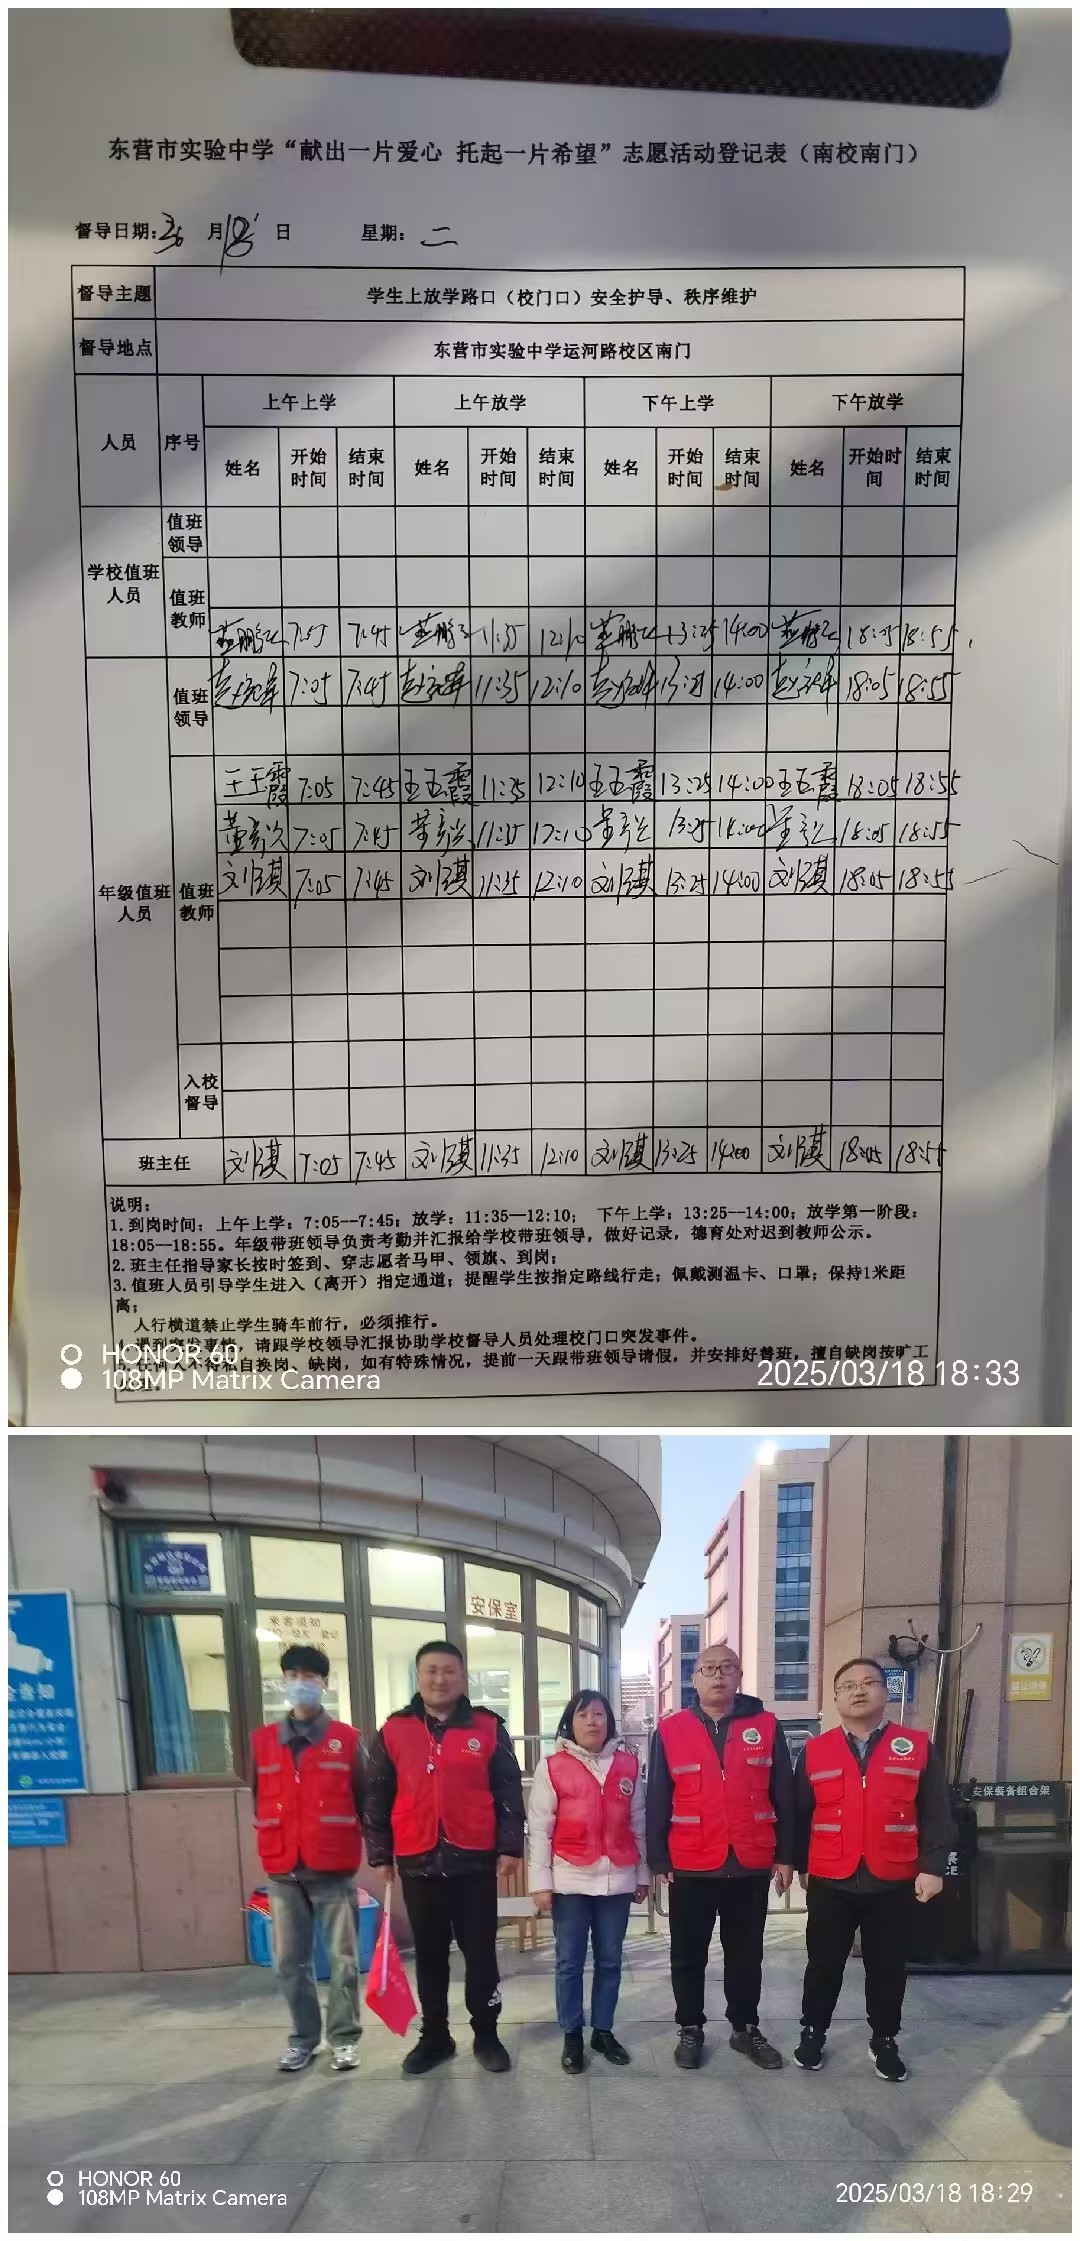 东营市实验中学“献出一片爱心 托起一片希望”志愿活动登记表（南校南门）
督导日期: 3 月 18 日 星期: 二
督导主题 学生上放学路口（校门口）安全护导、秩序维护
督导地点 东营市实验中学运河路校区南门
人员 序号 上午上学 上午放学 下午上学 下午放学
姓名 开始时间 结束时间 姓名 开始时间 结束时间 姓名 开始时间 结束时间 姓名 开始时间 结束时间
学校值班人员
值班领导
值班教师
7:05 7:45 11:35 12:10 13:25 14:00 18:05 18:55
年级值班人员
值班领导
7:05 7:45 11:35 12:10 13:25 14:00 18:05 18:55
值班教师
王玉霞 7:05 7:45 王玉霞 11:35 12:10 王玉霞 13:25 14:00 王玉霞 18:05 18:55
7:05 7:45 11:35 12:10 13:25 14:00 18:05 18:55
刘琪 7:05 7:45 刘琪 11:35 12:10 刘琪 13:25 14:00 刘琪 18:05 18:55
入校督导
班主任 刘琪 7:05 7:45 刘琪 11:35 12:10 刘琪 13:25 14:00 刘琪 18:05 18:55
说明：
1.到岗时间：上午上学：7:05--7:45；放学：11:35--12:10； 下午上学：13:25--14:00；放学第一阶段：
18:05--18:55。年级带班领导负责考勤并汇报给学校带班领导，做好记录，德育处对迟到教师公示。
2.班主任指导家长按时签到、穿志愿者马甲、领旗、到岗；
3.值班人员引导学生进入（离开）指定通道；提醒学生按指定路线行走；佩戴测温卡、口罩；保持1米距
离；
人行横道禁止学生骑车前行，必须推行。
4.遇到突发事情，请跟学校领导汇报协助学校督导人员处理校门口突发事件。
5.任何人不得私自换岗、缺岗，如有特殊情况，提前一天跟带班领导请假，并安排好替班，擅自缺岗按旷工
HONOR 60
108MP Matrix Camera
2025/03/18 18:33
安保室
来客须知
安保装备组合架
HONOR 60
108MP Matrix Camera
2025/03/18 18:29